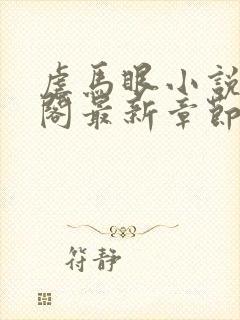 虐馬眼小說
閣最新章節
符靜